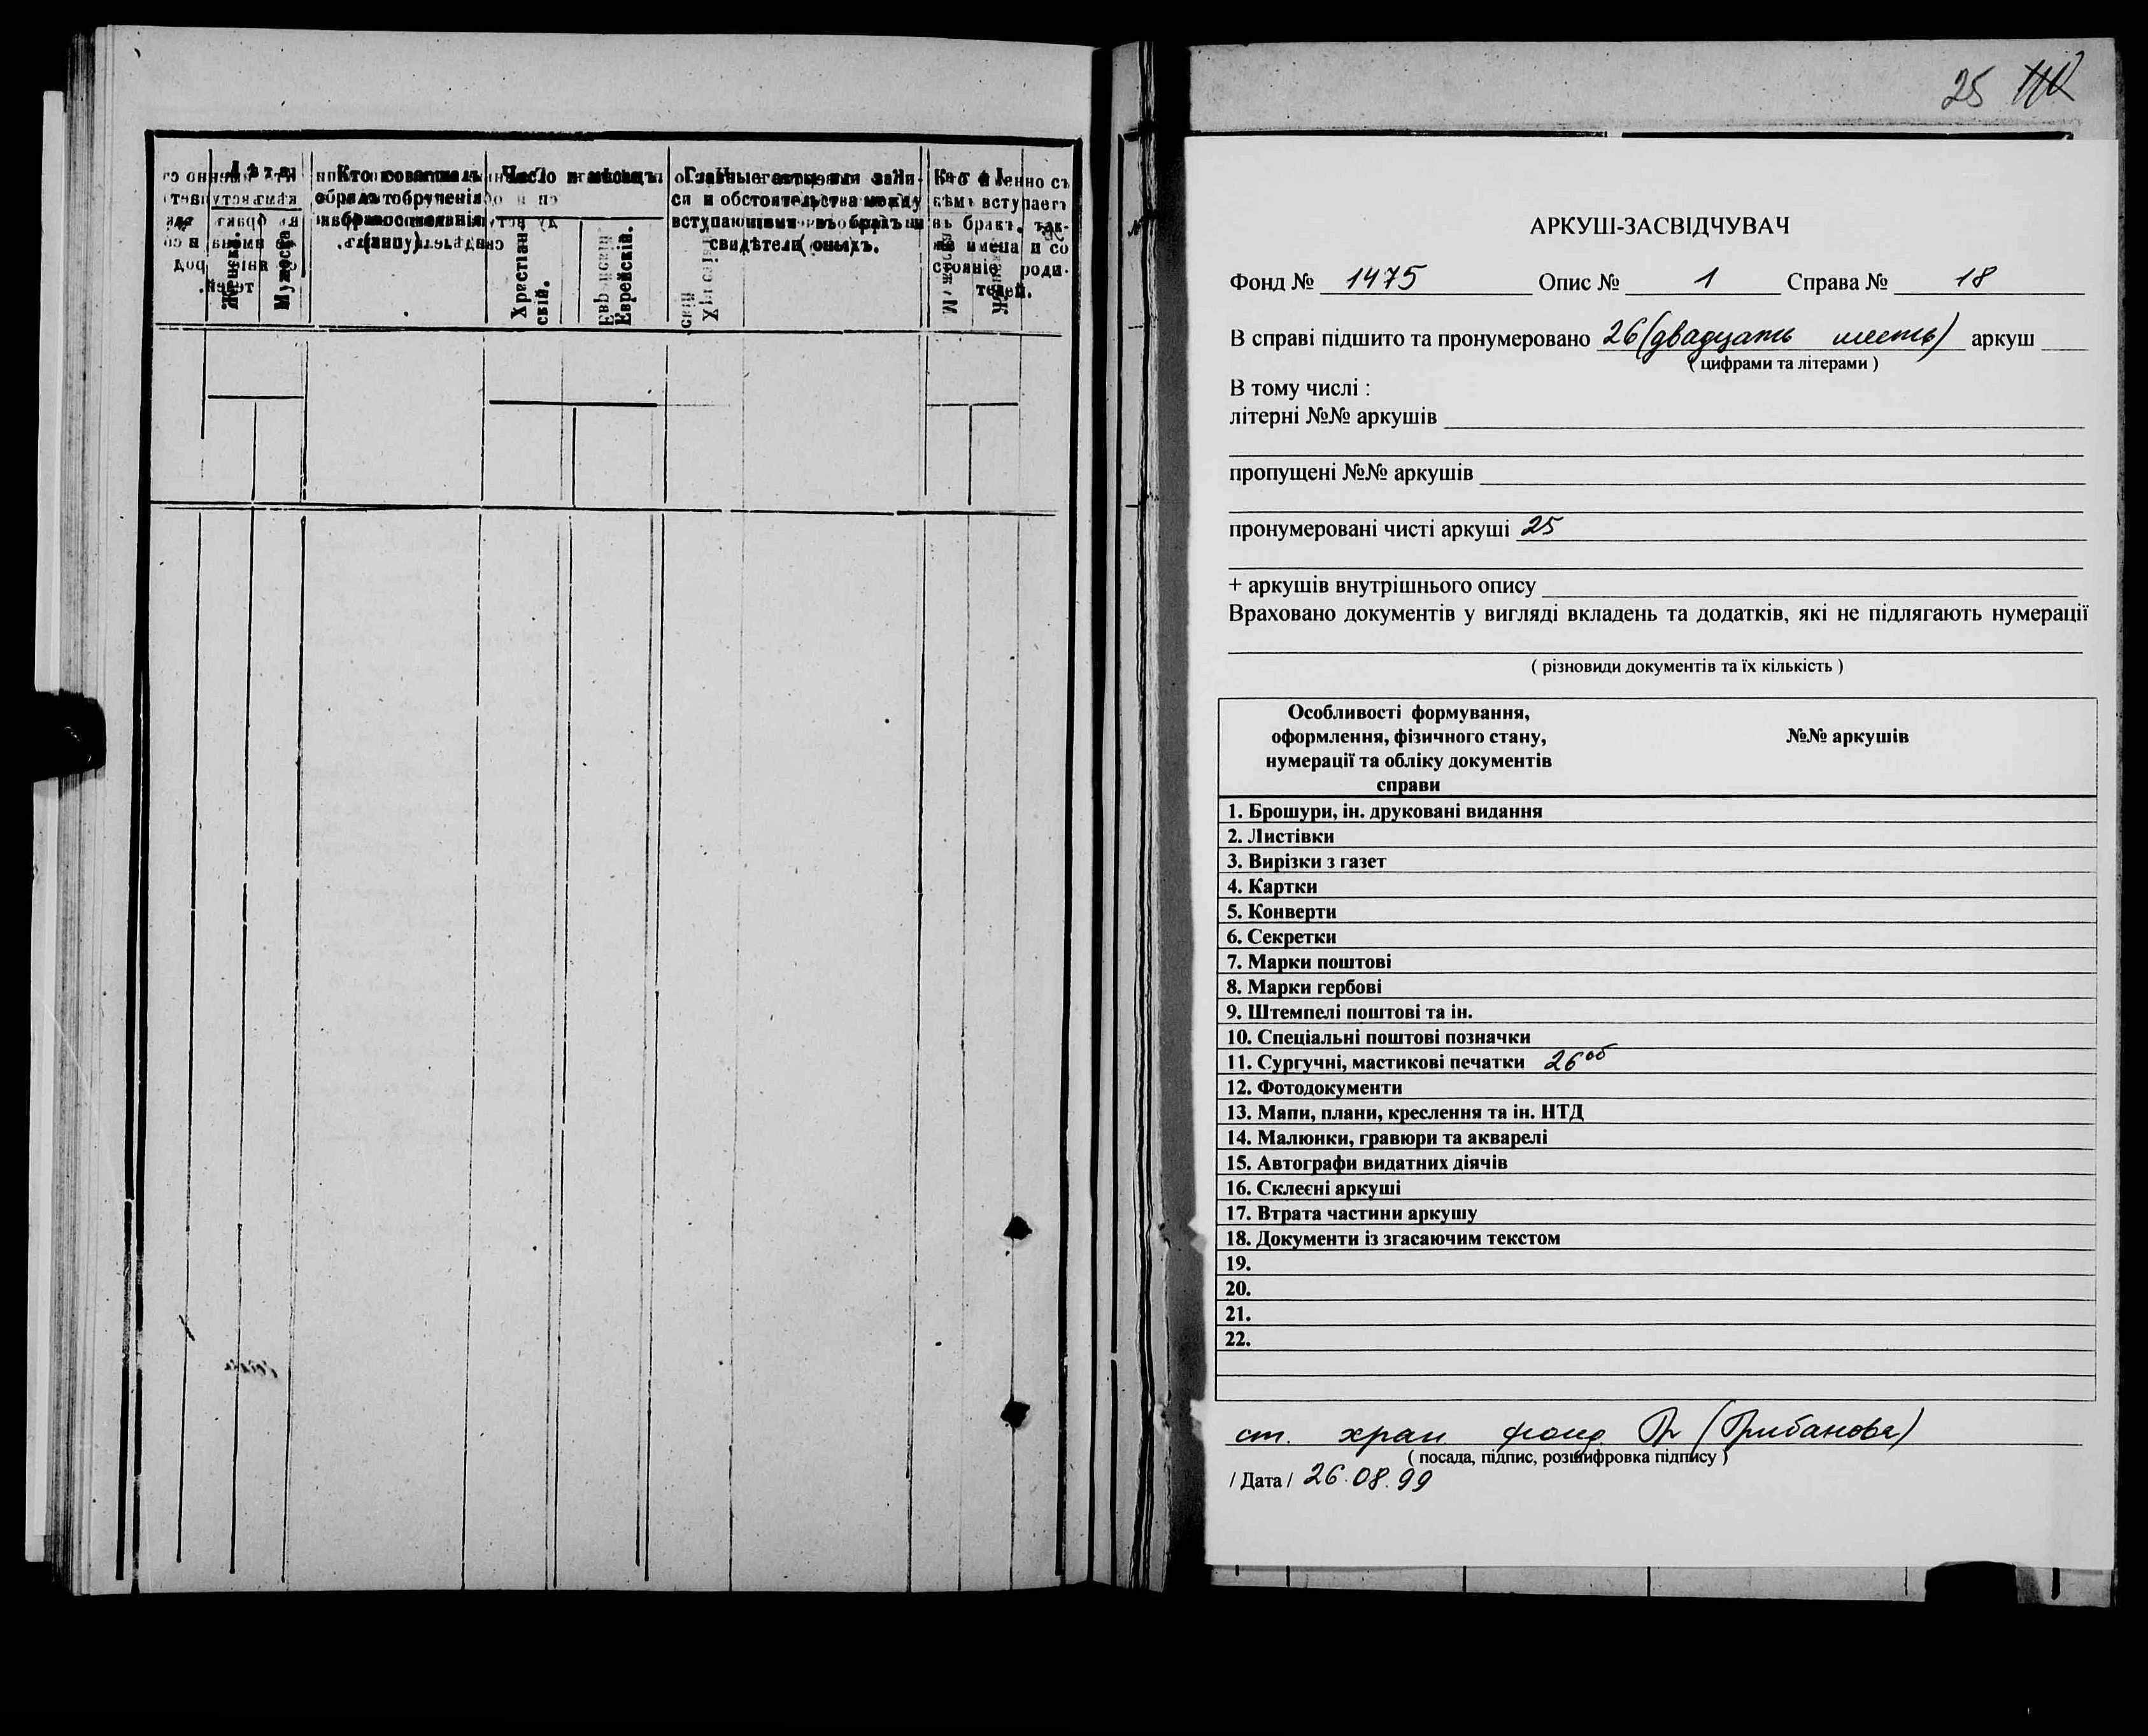 Лѣта.
Женска.
Мужеска.
Кто совершалъ
обрядъ обрученія
и бракосочетанія
Число и мѣсяцъ
Христіан-
скій.
Еврейскій.
Главные акты или запи-
си и обстоятельства между
вступающими въ бракъ и
свидѣтели оныхъ.
Кто именно съ
кѣмъ вступаетъ
въ бракъ, так-
же имена и со
стояніе роди-
телей.
25
АРКУШ-ЗАСВІДЧУВАЧ
Фонд № 1475 Опис № 1 Справа № 18
В справі підшито та пронумеровано 26 (двадцать шесть) аркуш
( цифрами та літерами )
В тому числі :
літерні №№ аркушів
пропущені №№ аркушів
пронумеровані чисті аркуші 25
+ аркушів внутрішнього опису
Враховано документів у вигляді вкладень та додатків, які не підлягають нумерації
( різновиди документів та їх кількість )
Особливості формування,
оформлення, фізичного стану,
нумерації та обліку документів
справи
№№ аркушів
1. Брошури, ін. друковані видання
2. Листівки
3. Вирізки з газет
4. Картки
5. Конверти
6. Секретки
7. Марки поштові
8. Марки гербові
9. Штемпелі поштові та ін.
10. Спеціальні поштові позначки
11. Сургучні, мастикові печатки 26об
12. Фотодокументи
13. Мапи, плани, креслення та ін. НТД
14. Малюнки, гравюри та акварелі
15. Автографи видатних діячів
16. Склеєні аркуші
17. Втрата частини аркушу
18. Документи із згасаючим текстом
19.
20.
21.
22.
ст. хран. фонд. (Грибанова)
( посада, підпис, розшифровка підпису )
/ Дата / 26.08.99